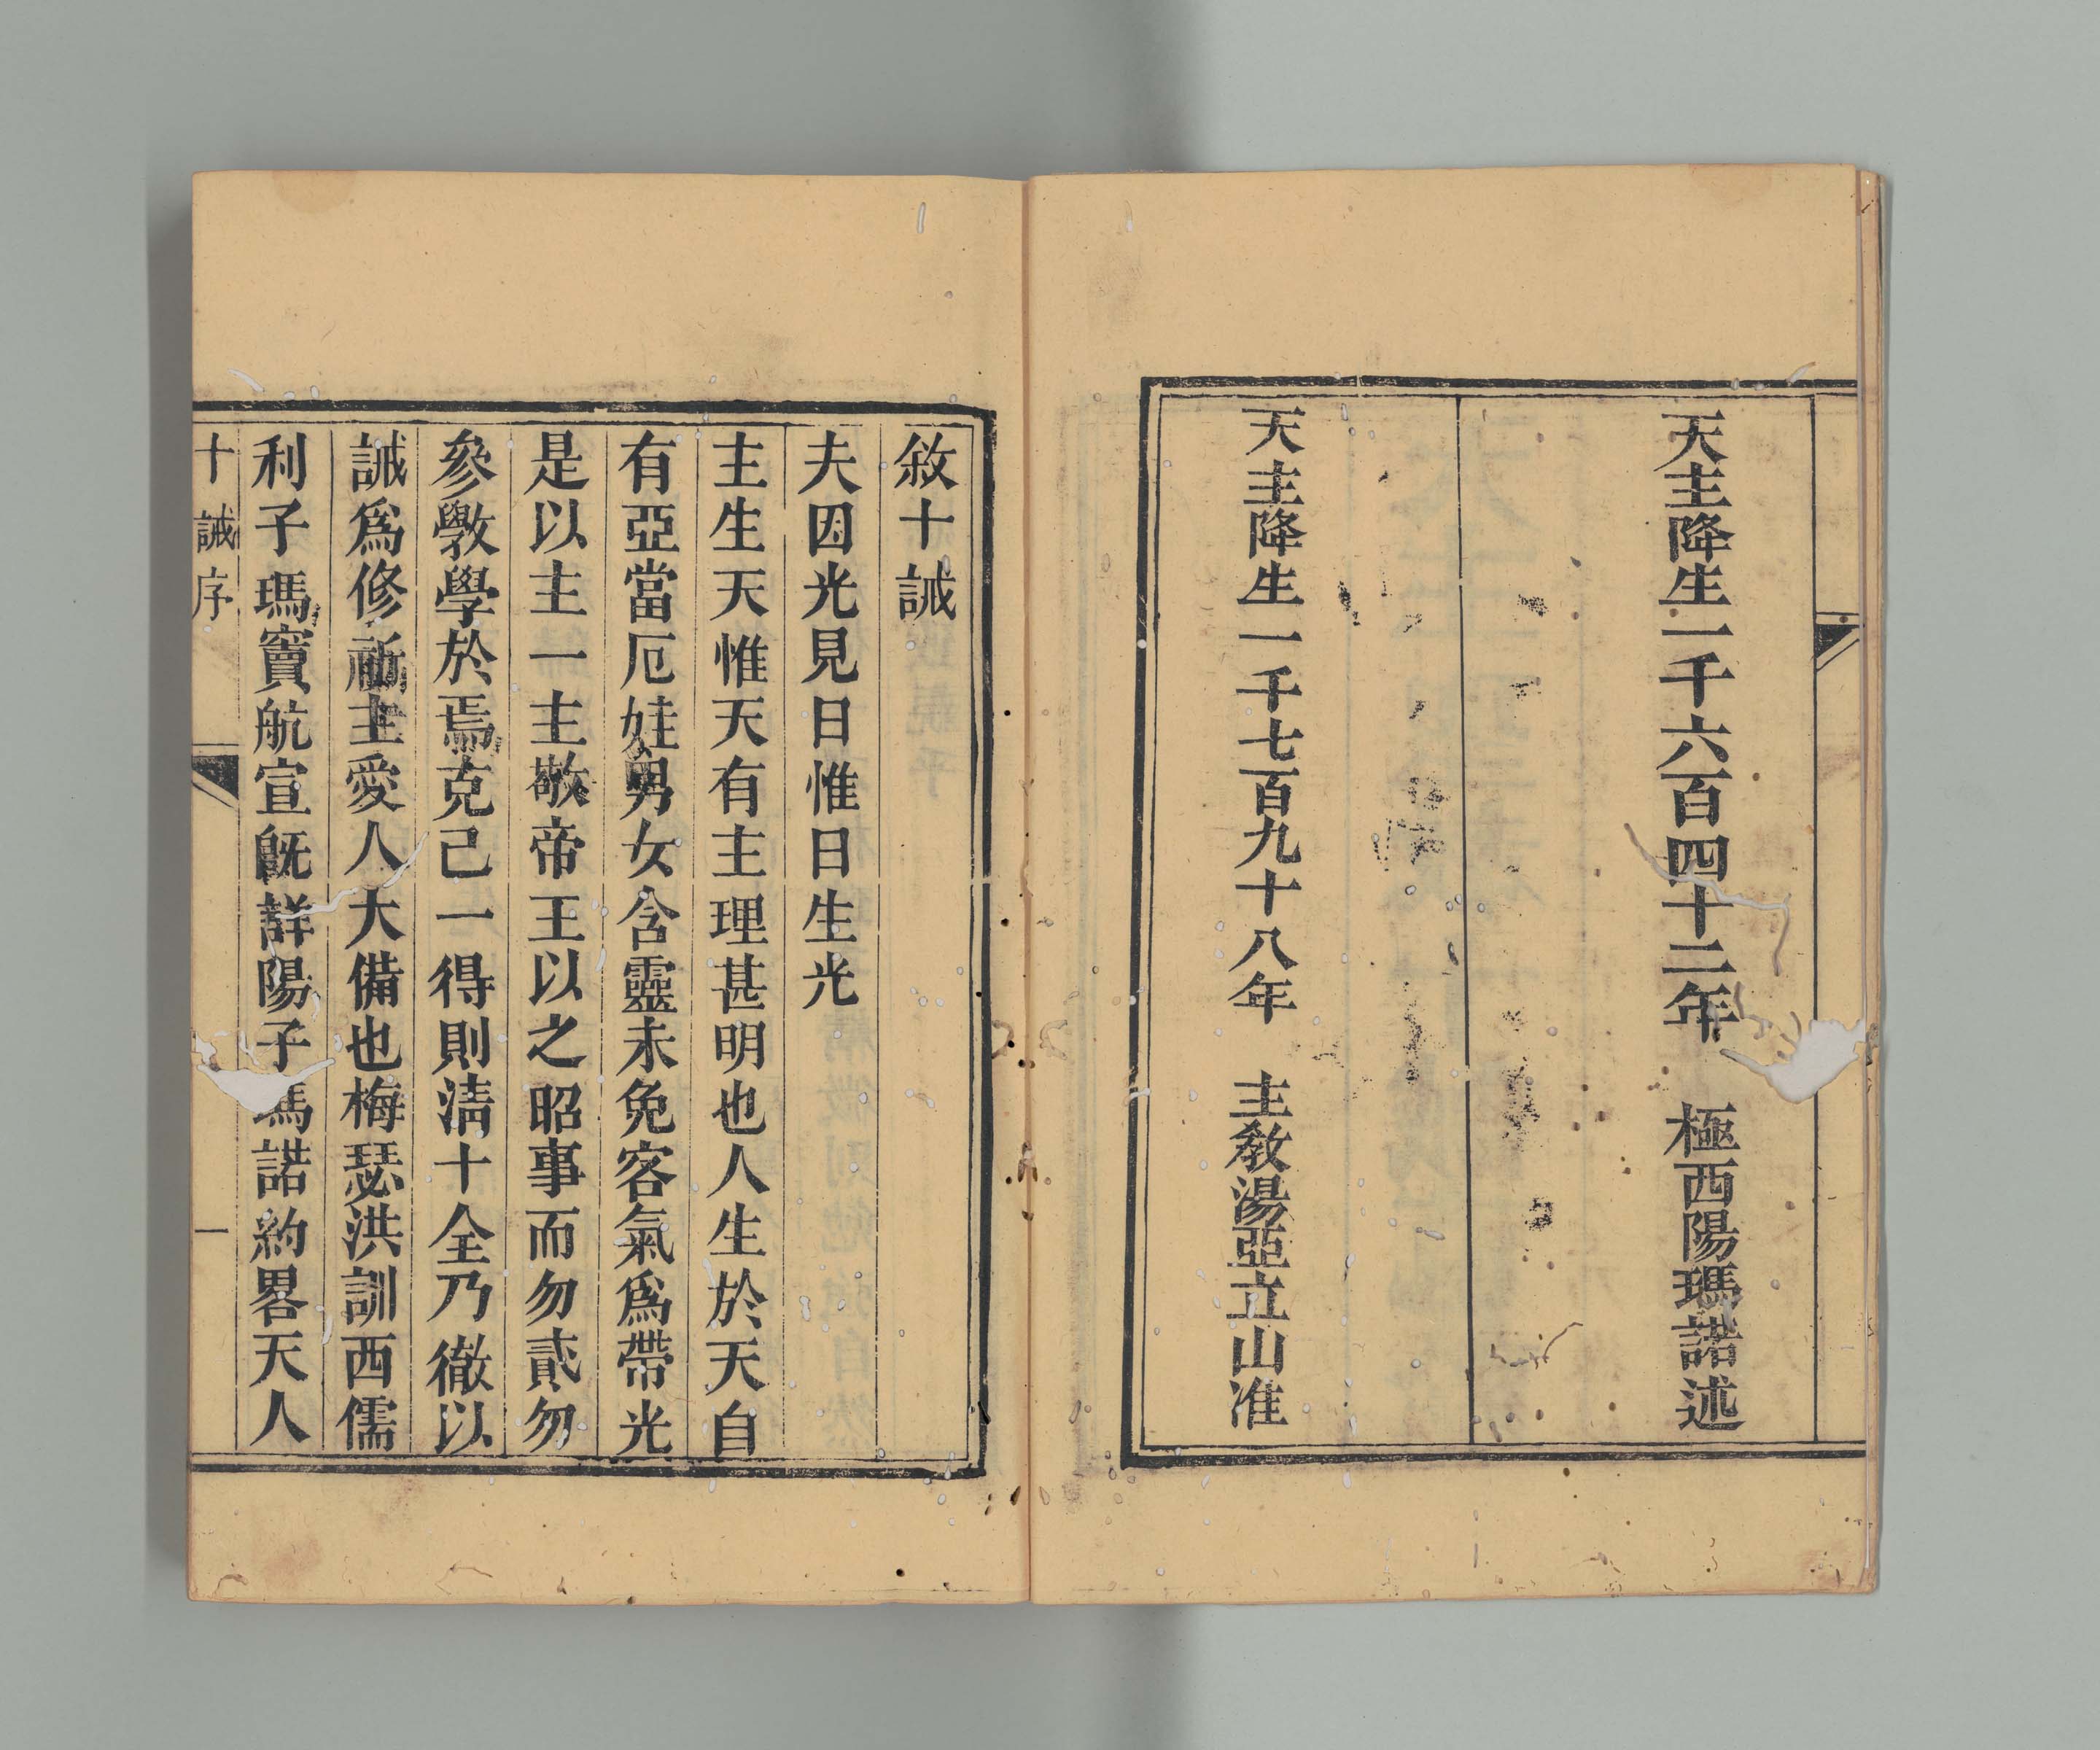 天主降生一千六百四十二年　極西陽瑪諾述
天主降生一千七百九十八年　主教湯亞立山准
敘十誡
夫因光見日惟日生光
主生天惟天有主理甚明也人生於天自
有亞當厄娃男女含靈未免客氣爲帶光
是以主一主敬帝王以之昭事而勿貳勿
參斆學於焉克己一得則淸十全乃徹以
誡爲修祈主愛人大備也梅瑟洪訓西儒
利子瑪竇航宣旣詳陽子瑪諾約畧天人
十誡序
一